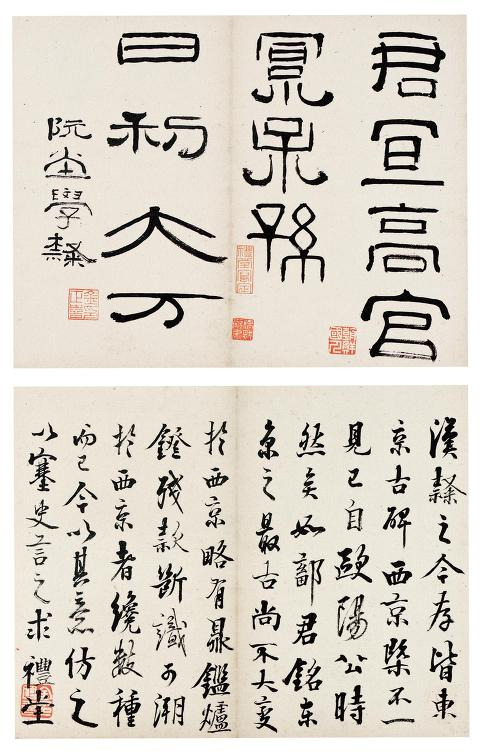 君宜高官
呆孫
日利大万
阮坣學隸
漢隸之今存皆東
京古碑西京槩不一
見已自歐陽公時
然矣如鄐君銘東
京之最古尚不大變
於西京略有鼎鑑爐
鐙殘款斷識可溯
於西京者纔數種
而已今以其意仿之
以塞史言之求 禮堂